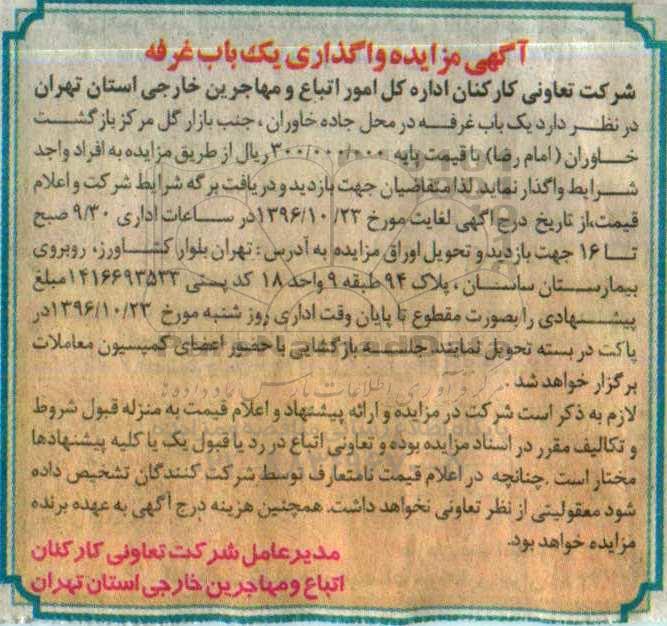 آگهی مزایده واگذاری یک باب غرفه
شرکت تعاونی کارکنان اداره کل امور اتباع و مهاجرین خارجی استان تهران
در نظر دارد یک باب غرفه در محل جاده خاوران ، جنب بازار گل مرکز بازگشت
خاوران ( امام رضا) با قیمت پایه ۳۰۰/۰۰۰/۰۰۰ ریال از طریق مزایده به افراد واجد
شرایط واگذار نماید. لذا متقاضیان جهت بازدید و دریافت برگه شرایط شرکت و اعلام
قیمت،از تاریخ درج اگهی لغایت مورخ ۱۳۹۶/۱۰/۲۳در ساعات اداری ۹/۳۰ صبح
تا ۱۶ جهت بازدید و تحویل اوراق مزایده به آدرس : تهران بلوار کشاورز، روبروی
بیمارستان ساسان ، پلاک ۹۴ طبقه ۹ واحد ۱۸ کد پستی ۱۴۱۶۶۹۳۵۳۳ مبلغ
پیشنهادی را بصورت مقطوع تا پایان وقت اداری روز شنبه مورخ ۱۳۹۶/۱۰/۲۳در
پاکت در بسته تحویل نمایند. جلسه بازگشایی با حضور اعضای کمیسیون معاملات
برگزار خواهد شد .
لازم به ذکر است شرکت در مزایده و ارائه پیشنهاد و اعلام قیمت به منزله قبول شروط
و تکالیف مقرر در اسناد مزایده بوده و تعاونی اتباع در رد یا قبول یک یا کلیه پیشنهادها
مختار است .چنانچه در اعلام قیمت نامتعارف توسط شرکت کنندگان تشخیص داده
شود معقولیتی از نظر تعاونی نخواهد داشت. همچنین هزینه درج آگهی به عهده برنده
مزایده خواهد بود.
مدیرعامل شرکت تعاونی کارکنان
اتباع و مهاجرین خارجی استان تهران